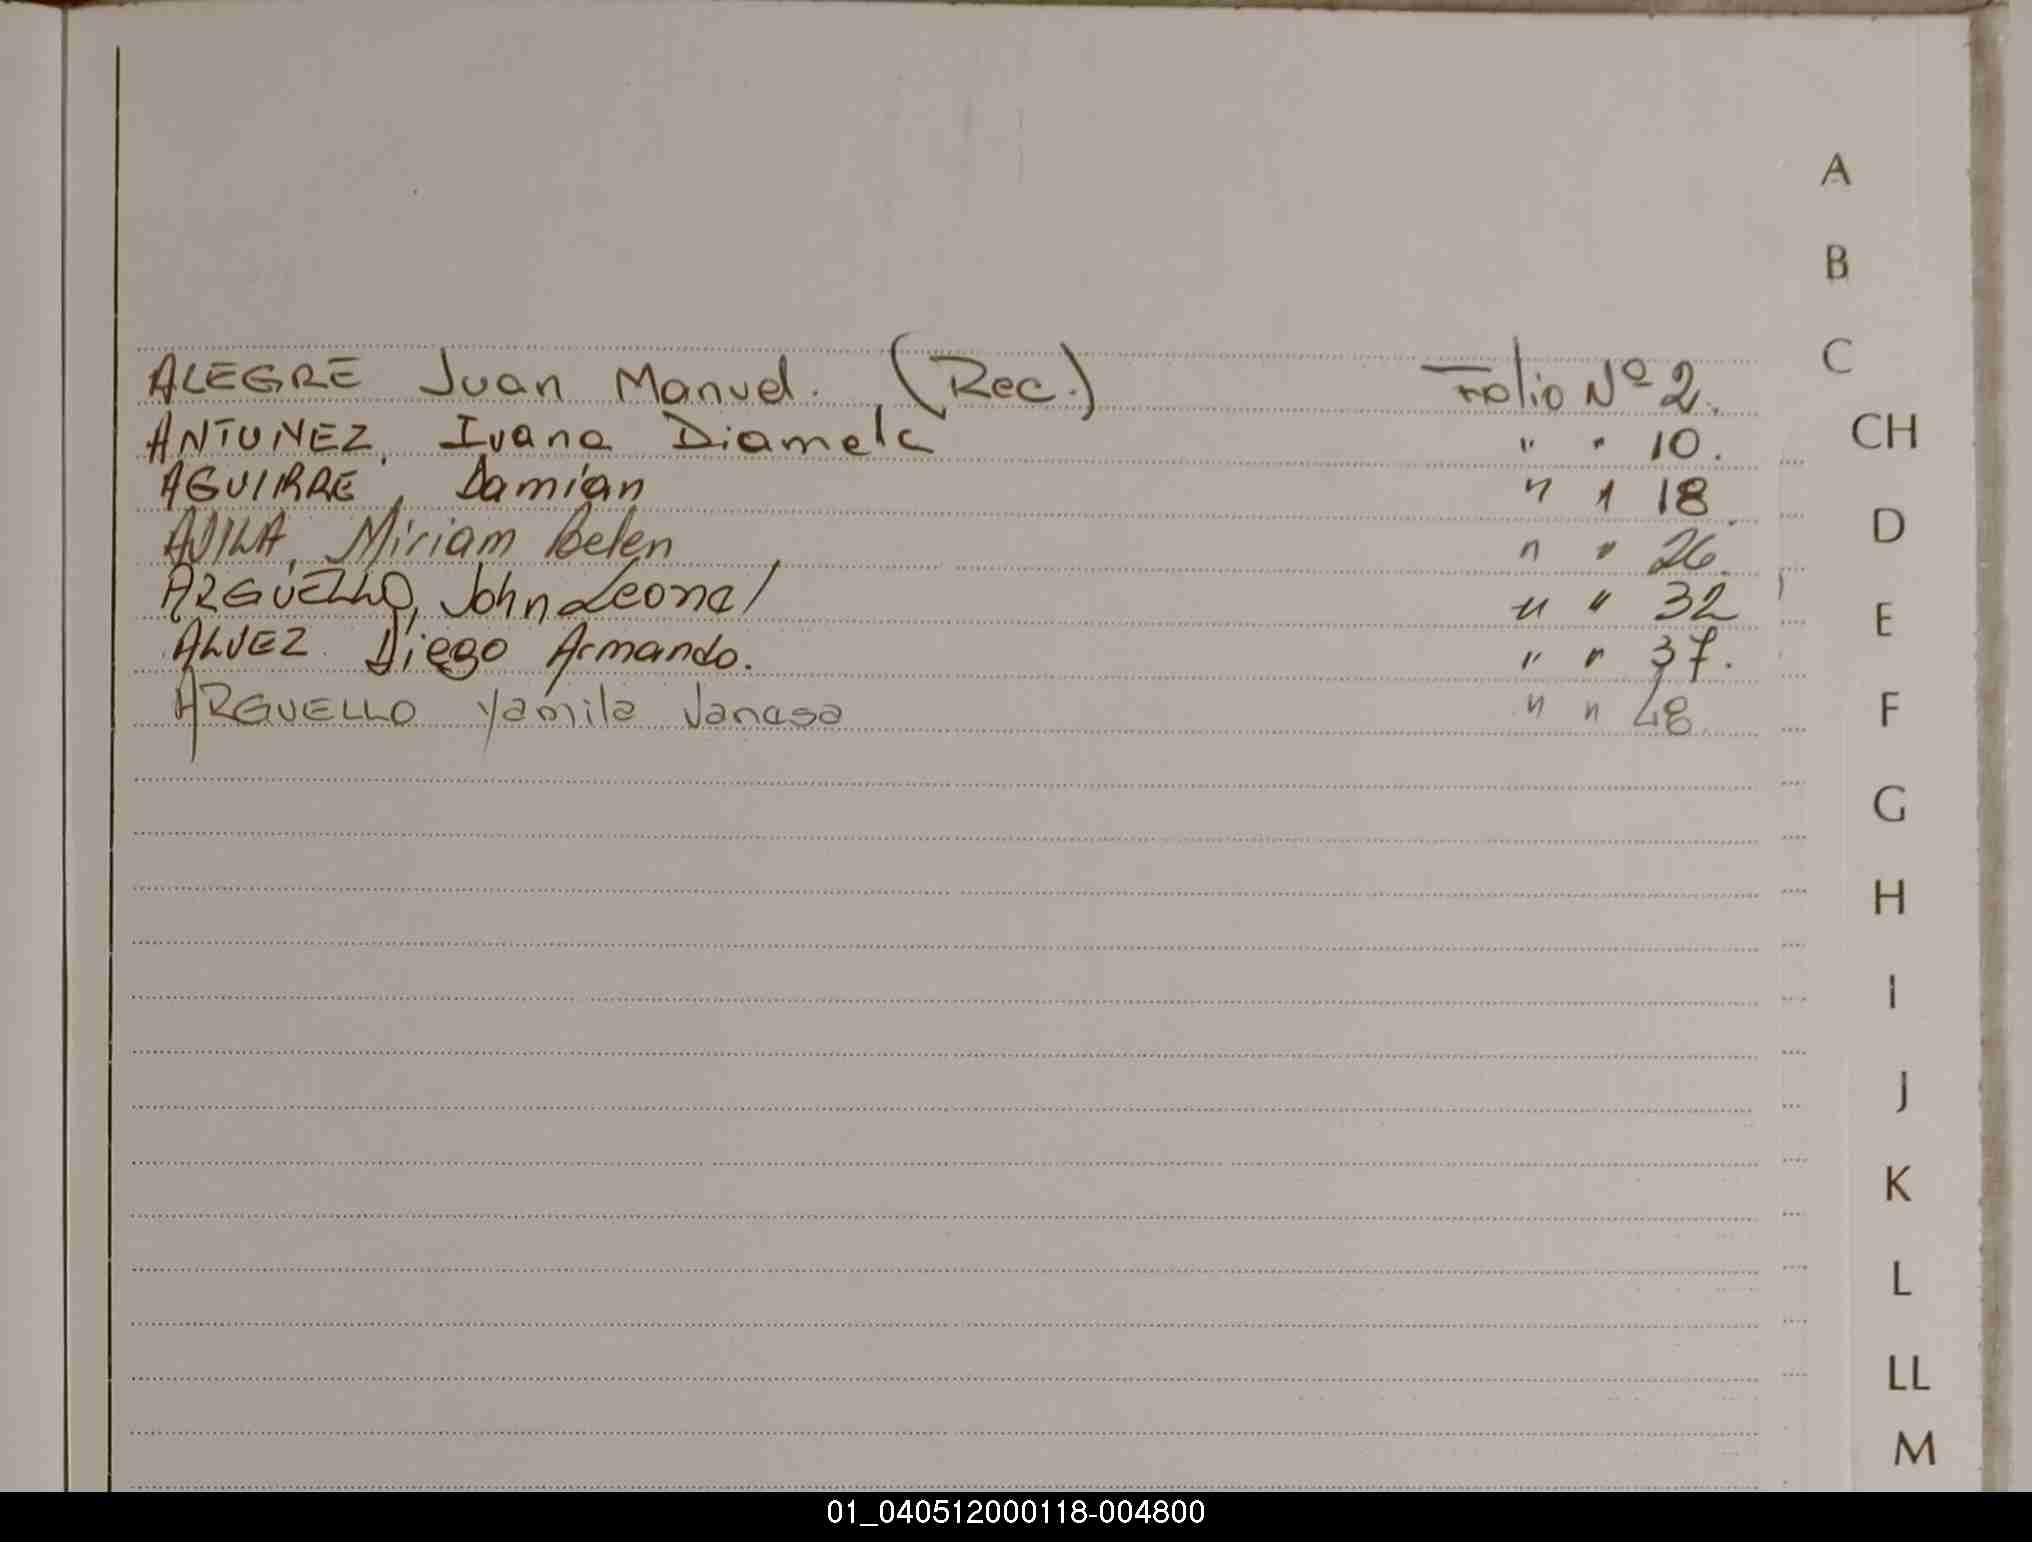 A
B
C
ALEGRE Juan Manuel. (Rec.) Folio Nº 2.
ANTUNEZ, Ivana Diamela " " 10.
CH
AGUIRRE, Damián " " 18
D
AVILA, Miriam Belen " " 26.
ARGÜELLO, John Leonel " " 32
E
ALVEZ Diego Armando. " " 37.
ARGUELLO Yamila Vanesa " " 48
F
G
H
I
J
K
L
LL
M
01_040512000118-004800